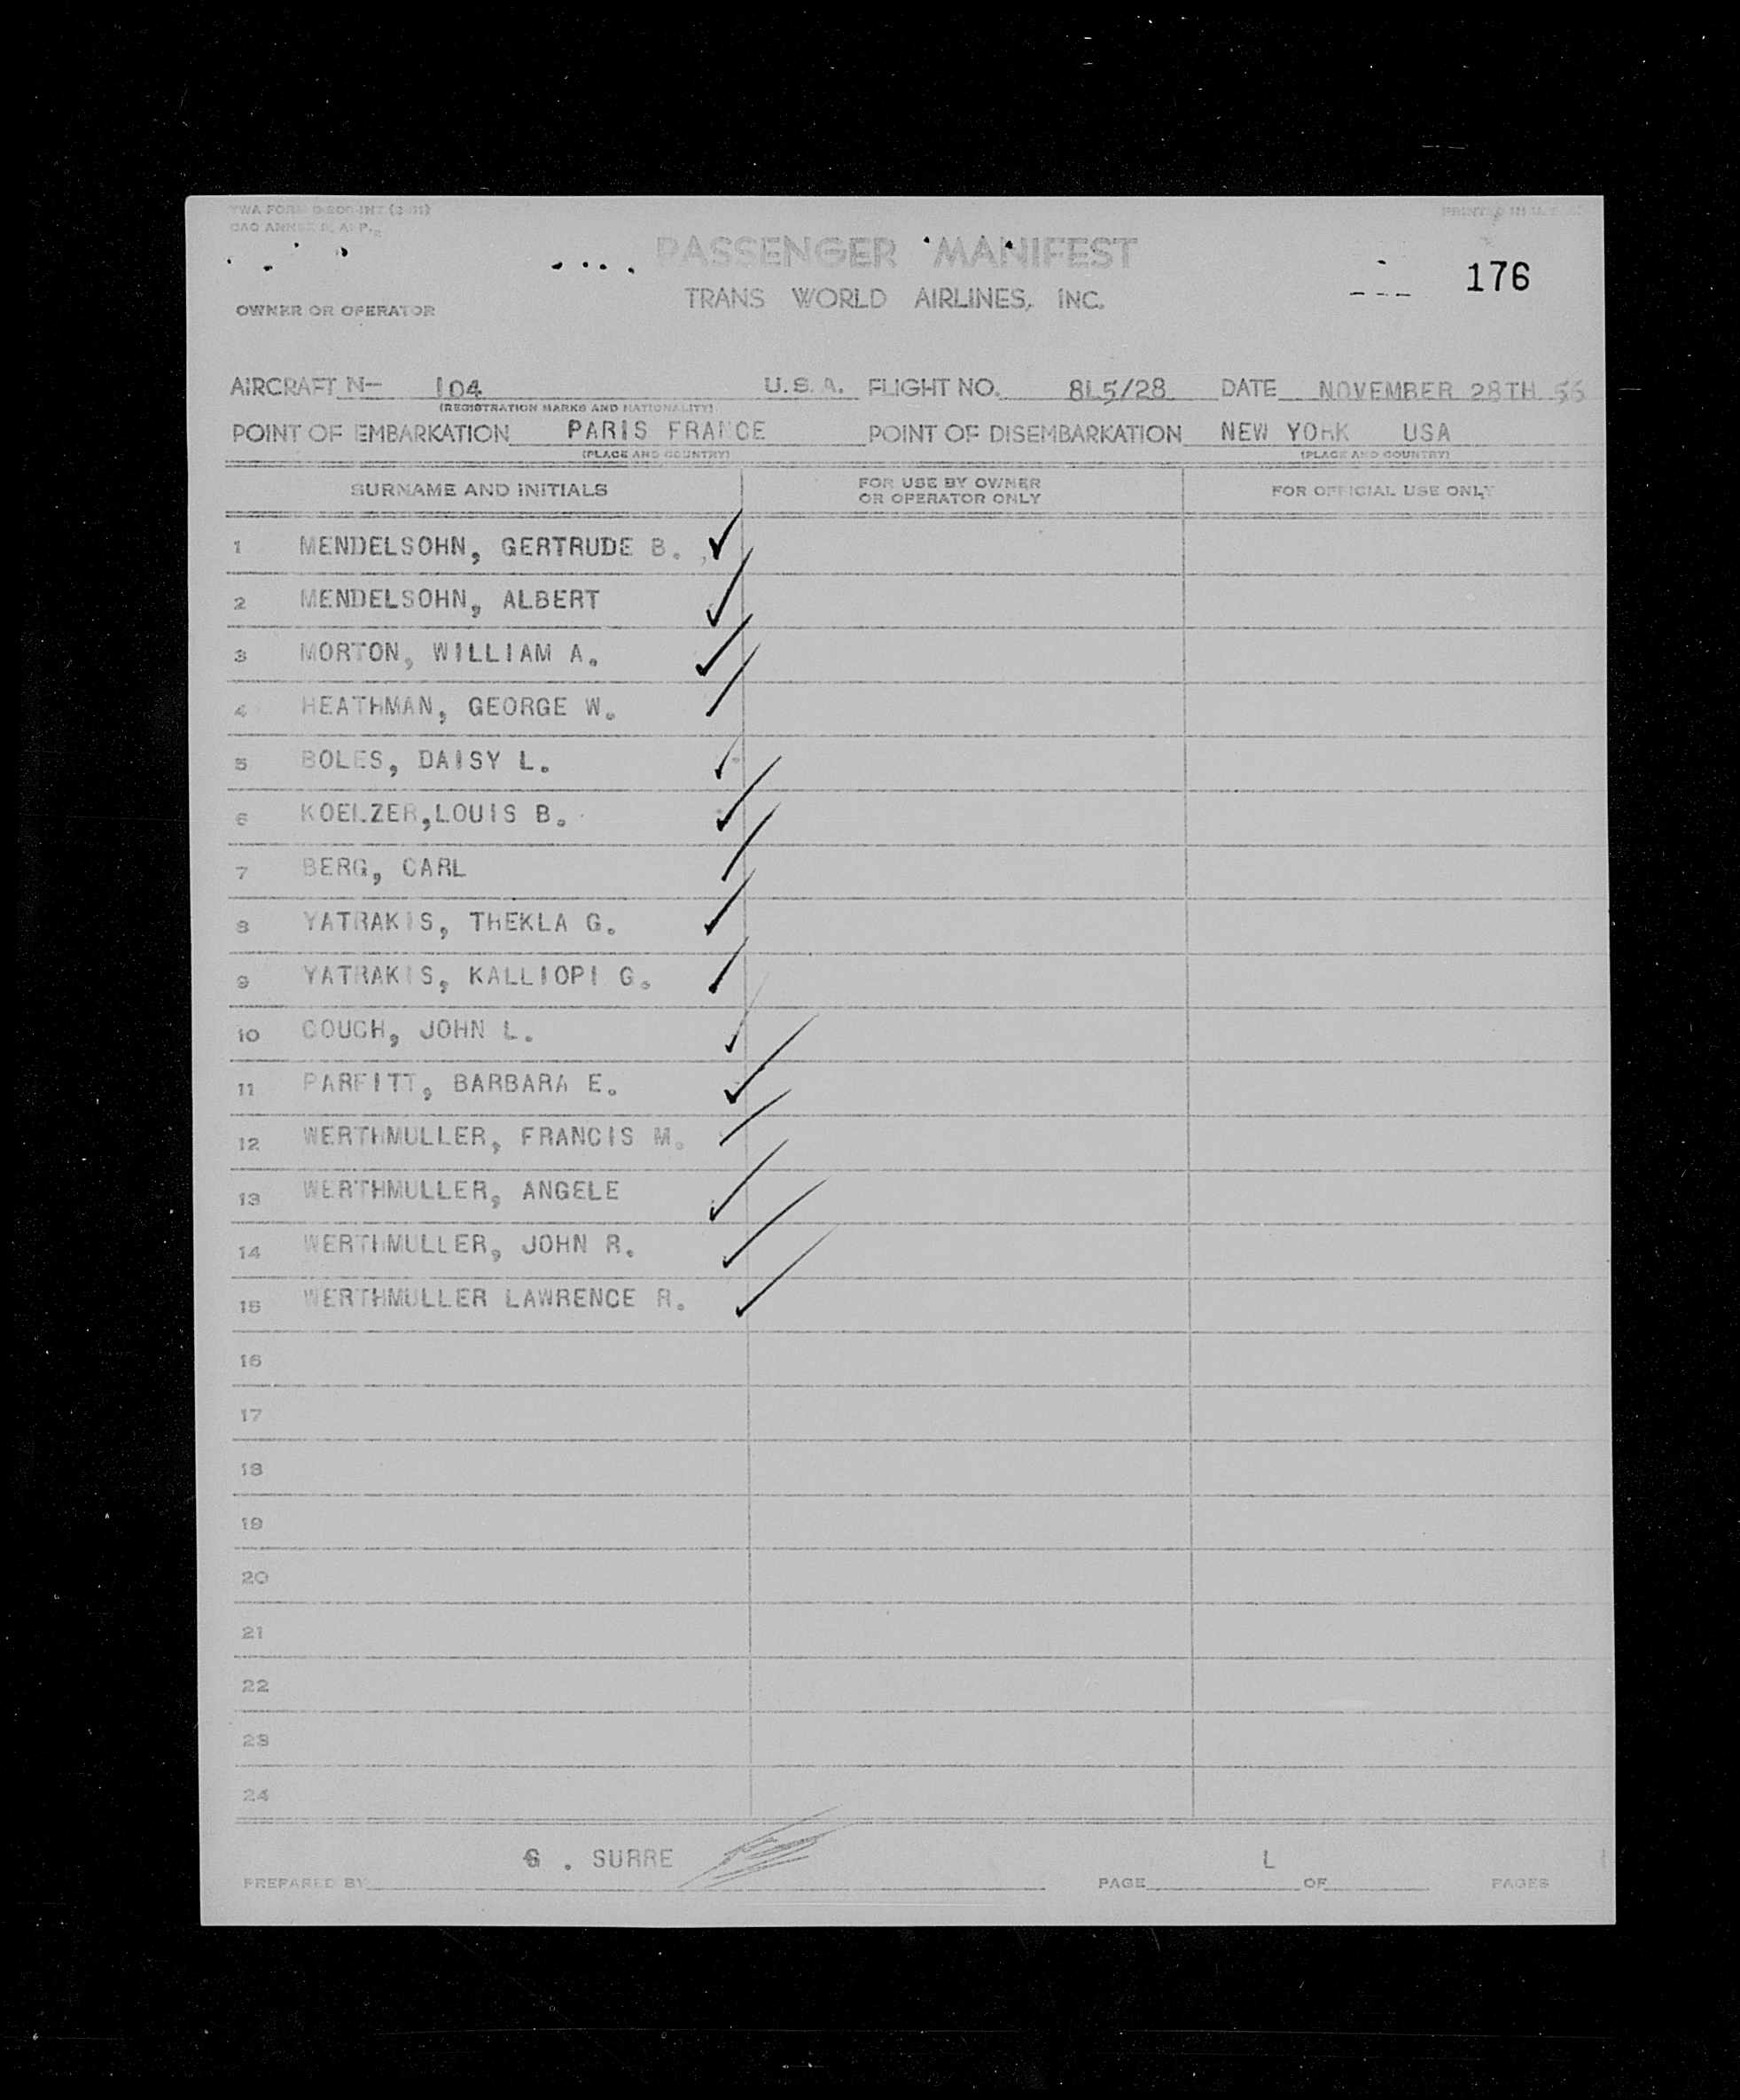 PASSENGER MANIFEST
176
TRANS WORLD AIRLINES, INC.
OWNER OR OPERATOR
AIRCRAFT N- 104 U.S.A. FLIGHT NO. 8L5/28 DATE NOVEMBER 28TH 56
(REGISTRATION MARKS AND NATIONALITY)
POINT OF EMBARKATION PARIS FRANCE POINT OF DISEMBARKATION NEW YORK USA
(PLACE AND COUNTRY) (PLACE AND COUNTRY)
SURNAME AND INITIALS FOR USE BY OWNER OR OPERATOR ONLY FOR OFFICIAL USE ONLY
1 MENDELSOHN, GERTRUDE B.
2 MENDELSOHN, ALBERT
3 MORTON, WILLIAM A.
4 HEATHMAN, GEORGE W.
5 BOLES, DAISY L.
6 KOELZER,LOUIS B.
7 BERG, CARL
8 YATRAKIS, THEKLA G.
9 YATRAKIS, KALLIOPI G.
10 COUCH, JOHN L.
11 PARFITT, BARBARA E.
12 WERTHMULLER, FRANCIS M.
13 WERTHMULLER, ANGELE
14 WERTHMULLER, JOHN R.
15 WERTHMULLER LAWRENCE R.
16
17
18
19
20
21
22
23
24
. SURRE L
PREPARED BY PAGE OF PAGES